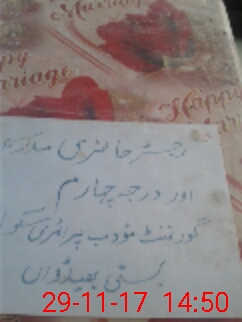 Marriage
Happy
Marriage
Happy
رجسٹر حاضری
اور درجہ چہارم
گورنمنٹ مؤدب پرائمری سکول
بستی بھیڈواں
29-11-17 14:50